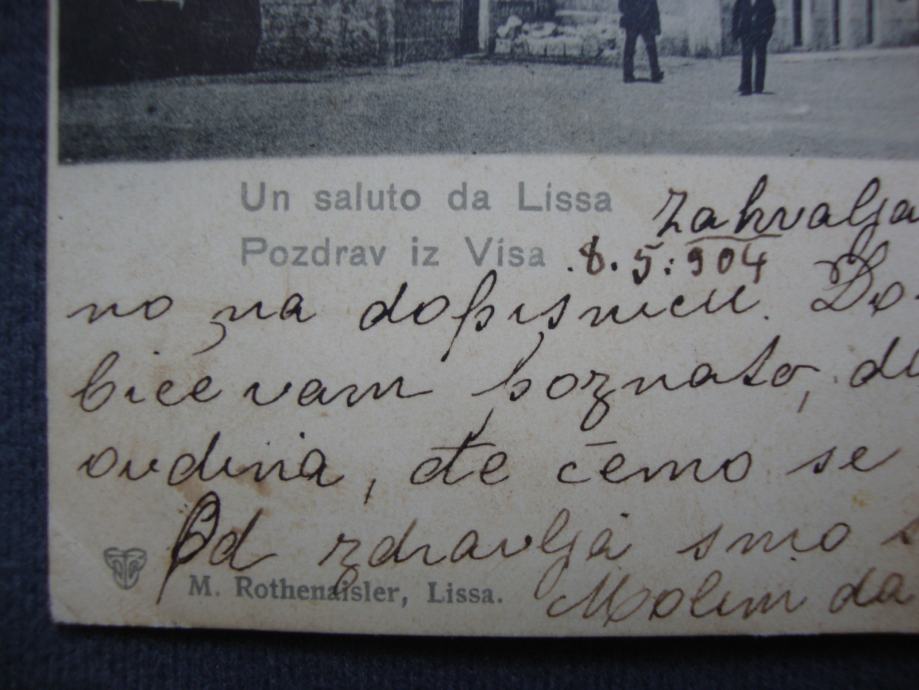 Un saluto da Lissa
zahvalja
Pozdrav iz Visa
8.5.904
no na dopisnicu. Do
biće vam poznato, da
ovdina, đe ćemo se
Od zdravlja smo s
M. Rothenaisler, Lissa.
Molim da